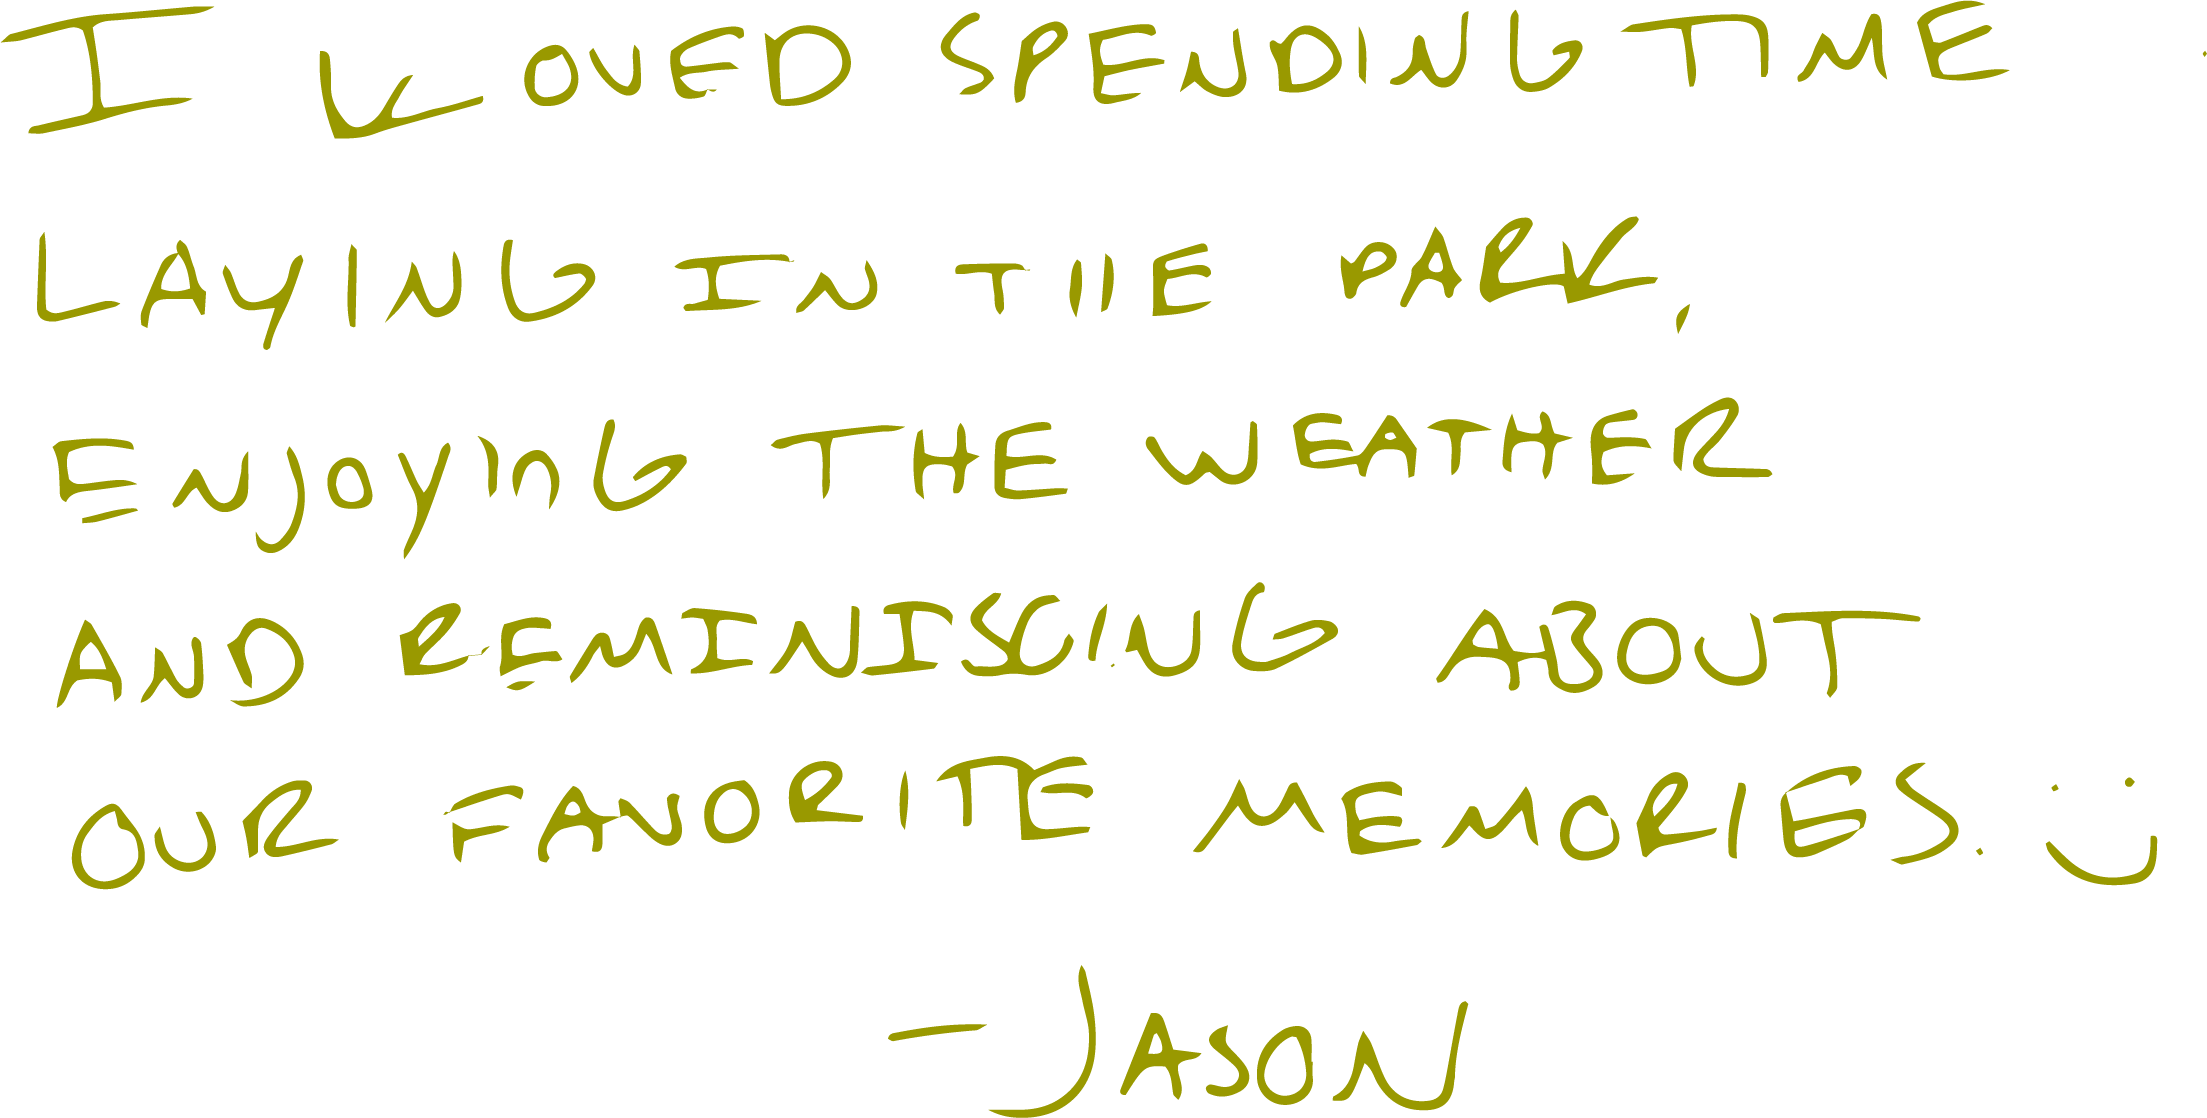 I LOVED SPENDING TIME
LAYING IN THE PARK,
ENJOYING THE WEATHER
AND REMINISCING ABOUT
OUR FAVORITE MEMORIES. :)
-JASON